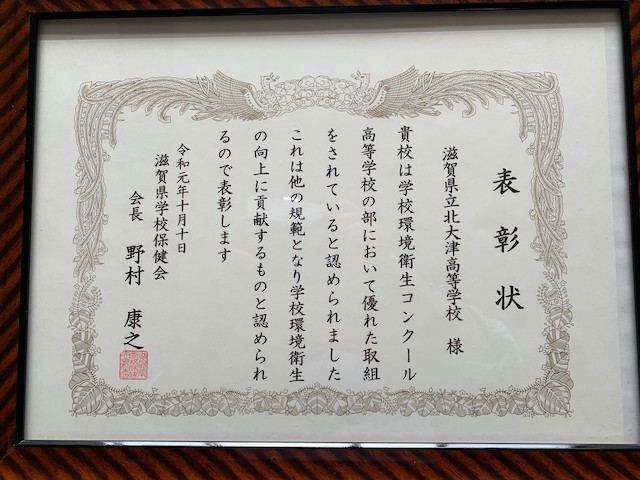 表彰状
滋賀県立北大津高等学校 様
貴校は学校環境衛生コンクール
高等学校の部において優れた取組
をされていると認められました
これは他の規範となり学校環境衛生
の向上に貢献するものと認められ
るので表彰します
令和元年十月十日
滋賀県学校保健会
会長 野村 康之